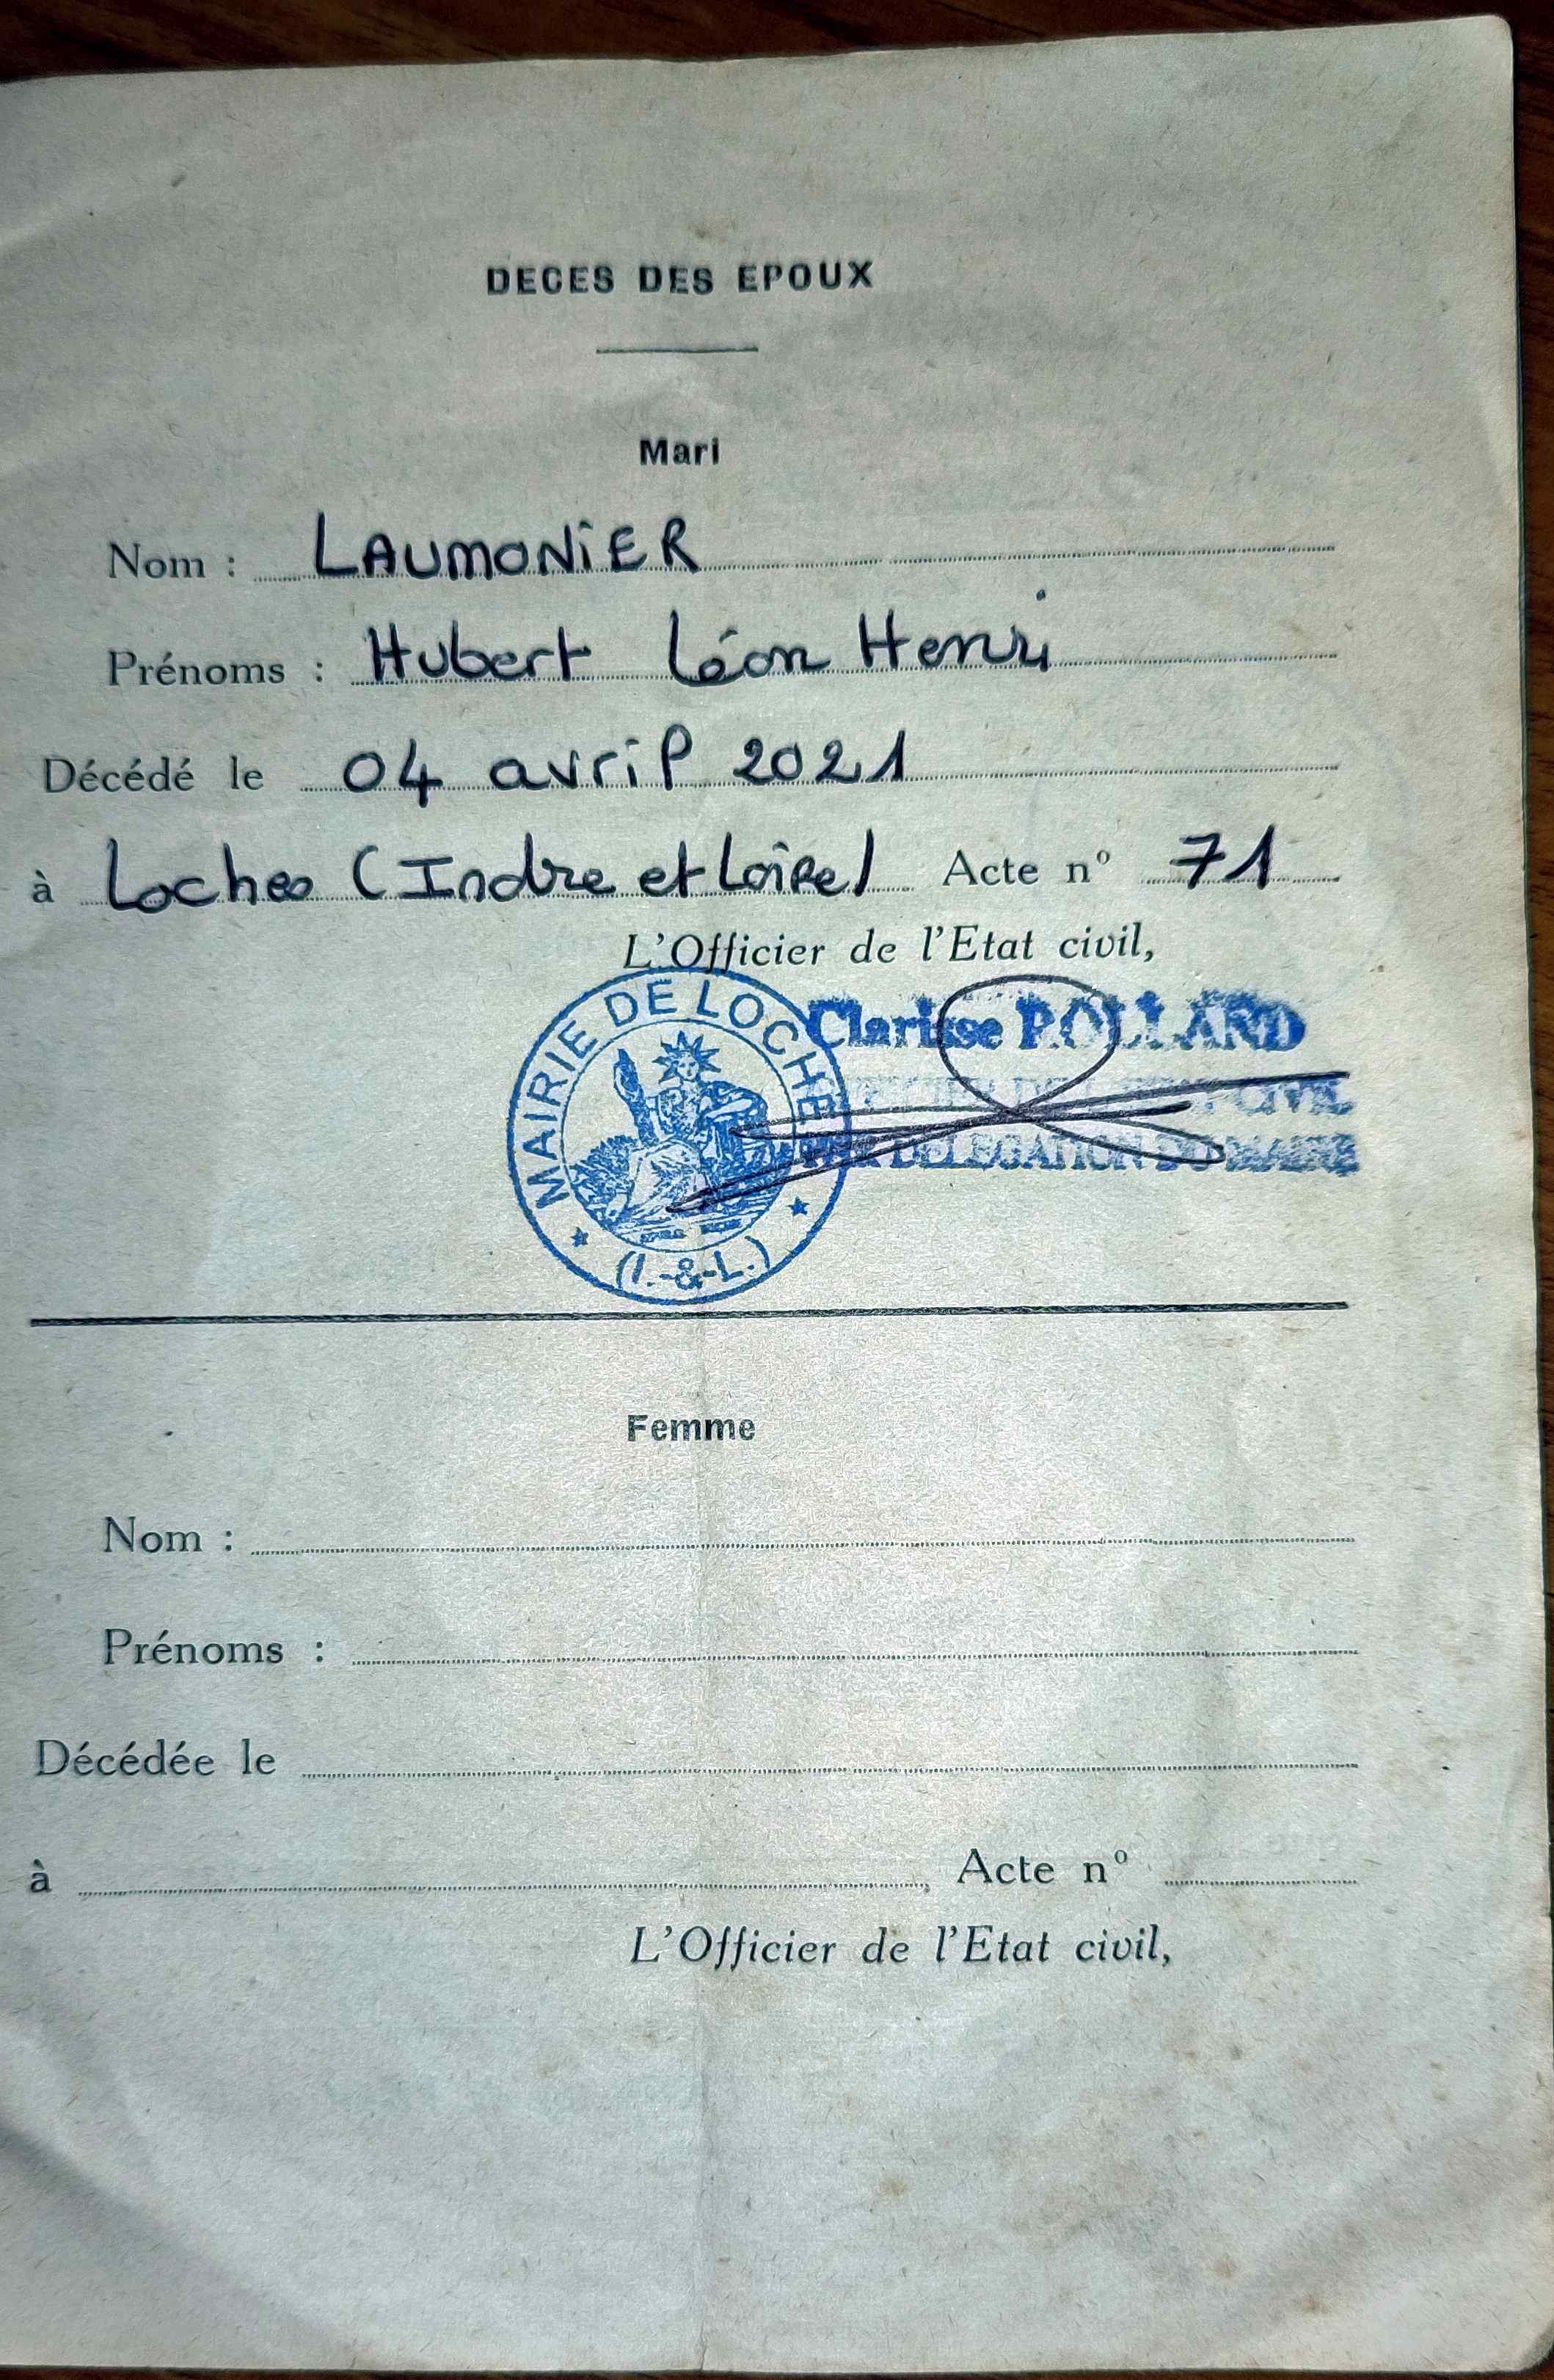 DECES DES EPOUX
Mari
Nom : LAUMONiER
Prénoms : Hubert Léon Henri
Décédé le 04 avril 2021
à Loches (Indre et Loire) Acte n° 71
L'Officier de l'Etat civil,
MAIRIE DE LOCHES
(I.-&-L.)
Clarisse ROLLARD
OFFICIER DE L'ETAT CIVIL
PAR DELEGATION DU MAIRE
Femme
Nom :
Prénoms :
Décédée le
à Acte n°
L'Officier de l'Etat civil,